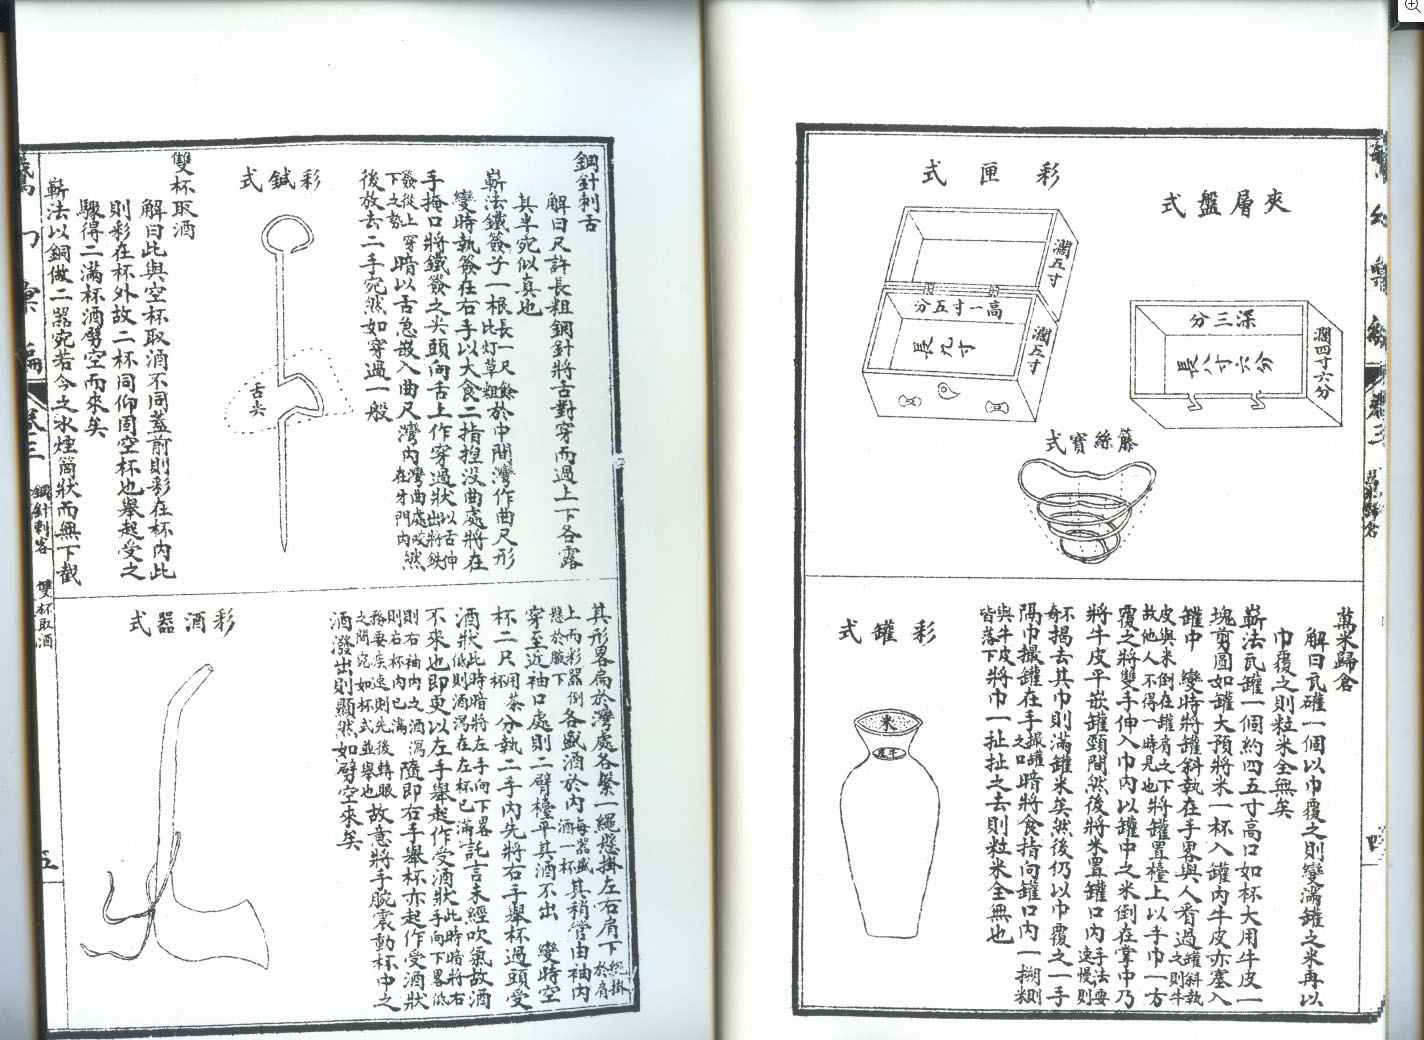 夾層盤式
深三分
濶四寸六分
長八寸六分
彩匣式
濶五寸
高一寸五分
濶五寸
長九寸
籐絲寶式
萬米歸倉
解曰瓦礶一個以巾覆之則變滿罐之米再以
巾覆之則粒米全無矣
嶄法瓦罐一個約四五寸高口如杯大用牛皮一
塊剪圓如罐大預將米一杯入罐內牛皮亦塞入
罐中 變時將罐斜執在手畧與人看過罐斜執之則牛
皮與米倒在罐肩之下故他人不得一時見也將罐置檯上以手巾一方
覆之將雙手伸入巾內以罐中之米倒在掌中乃
將牛皮平嵌罐頸間然後將米置罐口內手法要速慢則
不揭去其巾則滿罐米矣然後仍以巾覆之一手
隔巾撮罐在手撮罐之口暗將食指向罐口內一搠米則
與牛皮皆落下將巾一扯扯之去則粒米全無也
彩罐式
米
牛皮
萬米歸倉
四
鋼針刺舌
解曰尺許長粗鋼針將舌對穿而過上下各露
其半宛似真也
嶄法鐵簽子一根長一尺餘比灯草粗於中間灣作曲尺形
變時執簽在右手以大食二指揑没曲處將在
手掩口將鐵簽之尖頭向舌上作穿過狀以舌伸出將鉄
簽從上穿下之勢暗以舌急嵌入曲尺灣內灣曲處咬在牙門內然
後放去二手宛然如穿過一般
彩鍼式
舌尖
雙杯取酒
解曰此與空杯取酒不同蓋前則彩在杯內此
則彩在杯外故二杯同仰固空杯也舉起受之
驟得二滿杯酒劈空而來矣
嶄法以銅做二器宛若今之水煙筒狀而無下截
其形畧扁於灣處各繫一繩懸掛左右肩下繩掛於肩
上而彩器倒懸於腋下各盛酒於內每器盛酒一杯其稍管由袖內
穿至近袖口處則二臂檯平其酒不出 變時空
杯二只用茶杯分執二手內先將右手舉杯過頭受
酒狀此時暗將左手向下畧低則酒瀉在左杯已滿託言未經吹氣故酒
不來也即更以左手舉起作受酒狀此時暗將右手向下畧低
則右袖內之酒瀉則右杯內已滿隨即右手舉杯亦起作受酒狀
務要疾速則先後轉眼之間宛如杯式並舉也故意將手腕震動杯中之
酒潑出則顯然如劈空來矣
彩酒器式
編
卷三
鋼針刺舌
雙杯取酒
五